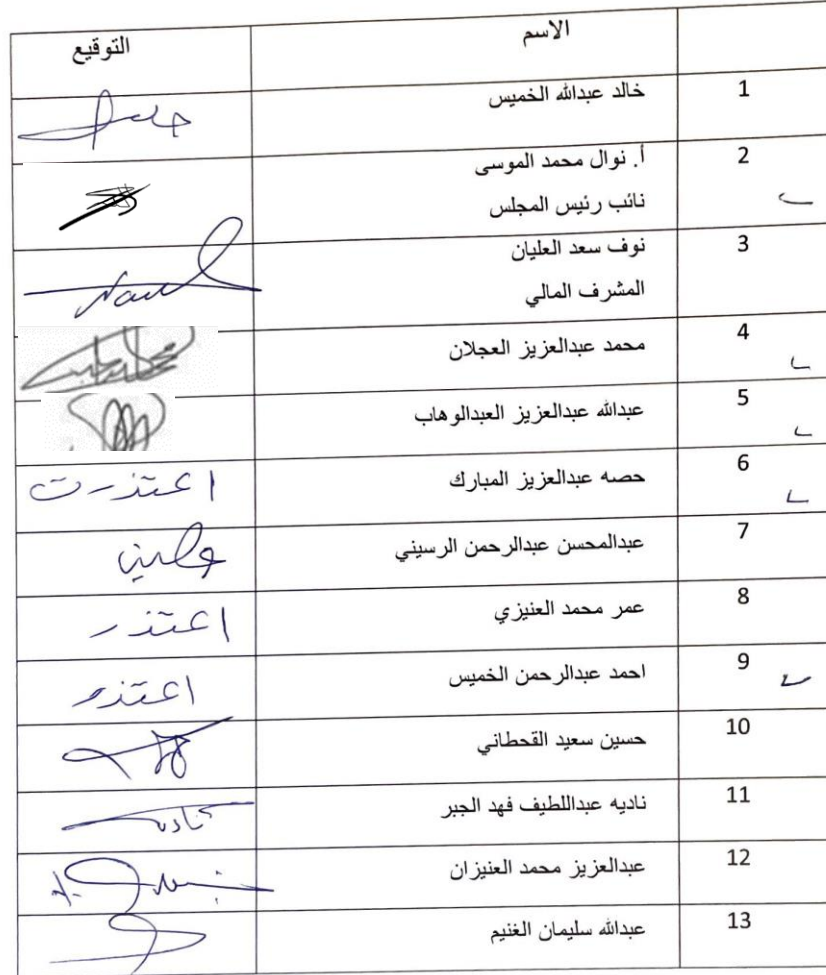 الاسم التوقيع
1 خالد عبدالله الخميس
2 أ. نوال محمد الموسى
نائب رئيس المجلس
3 نوف سعد العليان
المشرف المالي
4 محمد عبدالعزيز العجلان
5 عبدالله عبدالعزيز العبدالوهاب
6 حصه عبدالعزيز المبارك اعتذرت
7 عبدالمحسن عبدالرحمن الرسيني
8 عمر محمد العنيزي اعتذر
9 احمد عبدالرحمن الخميس اعتذر
10 حسين سعيد القحطاني
11 ناديه عبداللطيف فهد الجبر
12 عبدالعزيز محمد العنيزان
13 عبدالله سليمان الغنيم